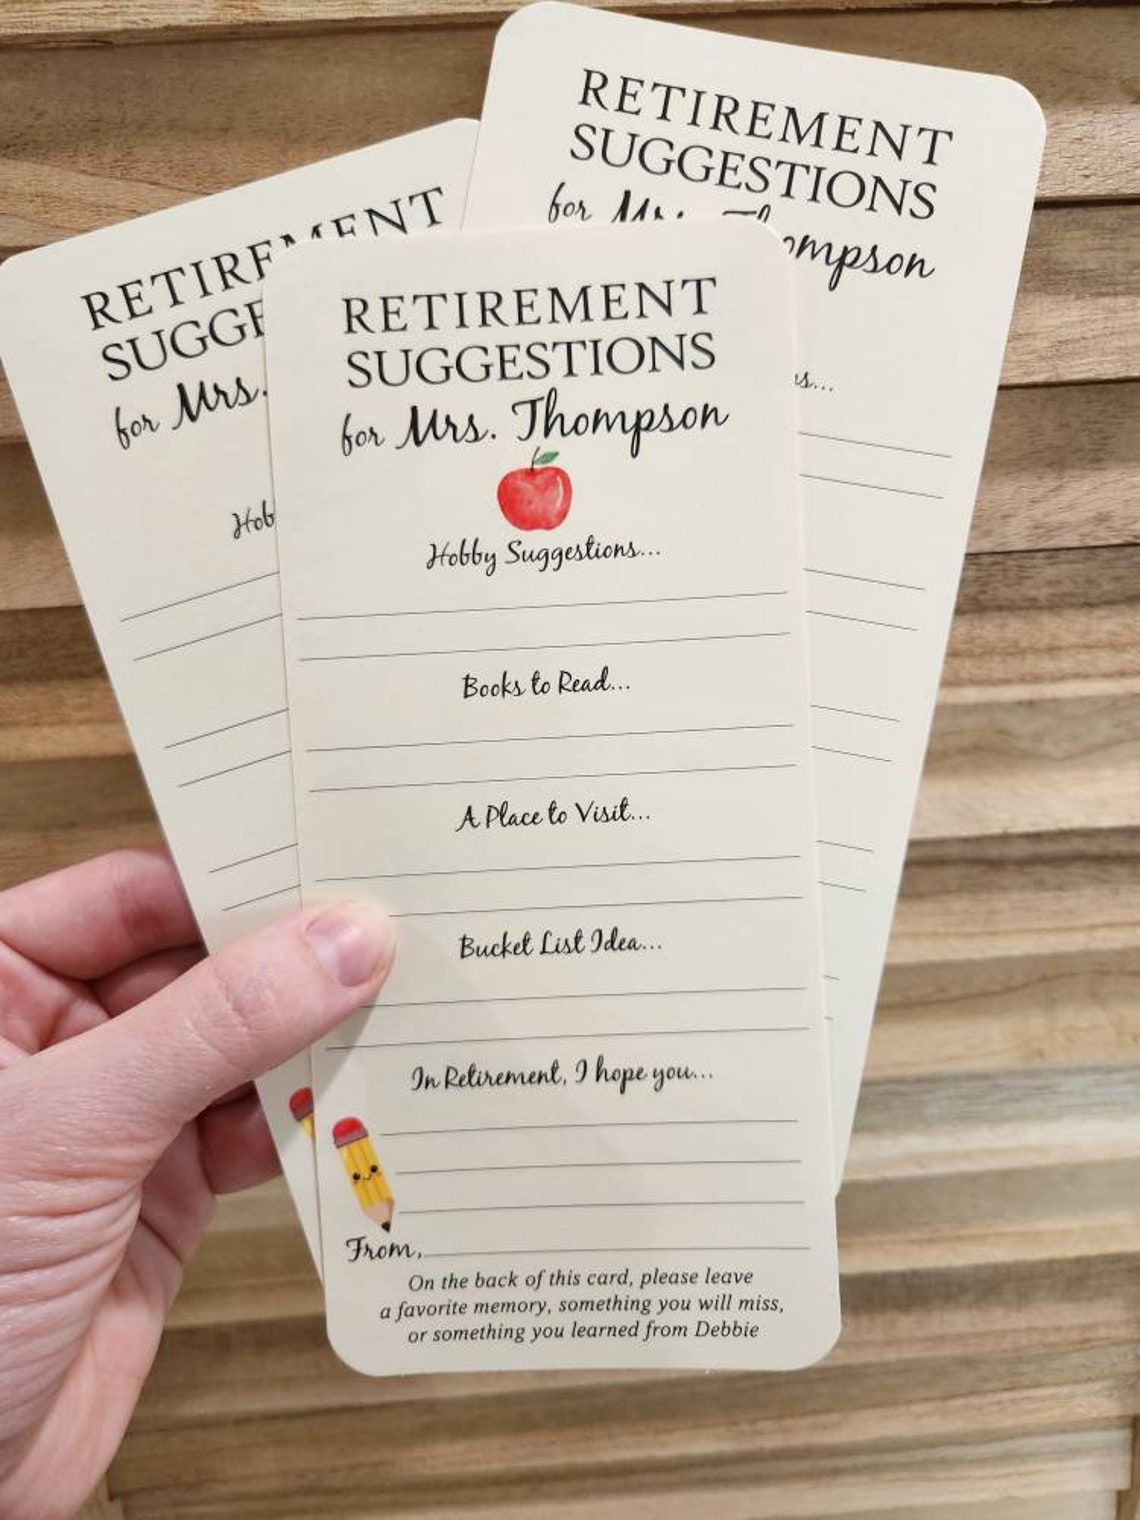 RETIREMENT
SUGGESTIONS
for Mrs. Thompson
Hobby Suggestions...
Books to Read...
A Place to Visit...
Bucket List Idea...
In Retirement, I hope you...
From,
On the back of this card, please leave
a favorite memory, something you will miss,
or something you learned from Debbie
RETIREMENT
for Mrs.
RETIREMENT
SUGGESTIONS
for Mrs. Thompson